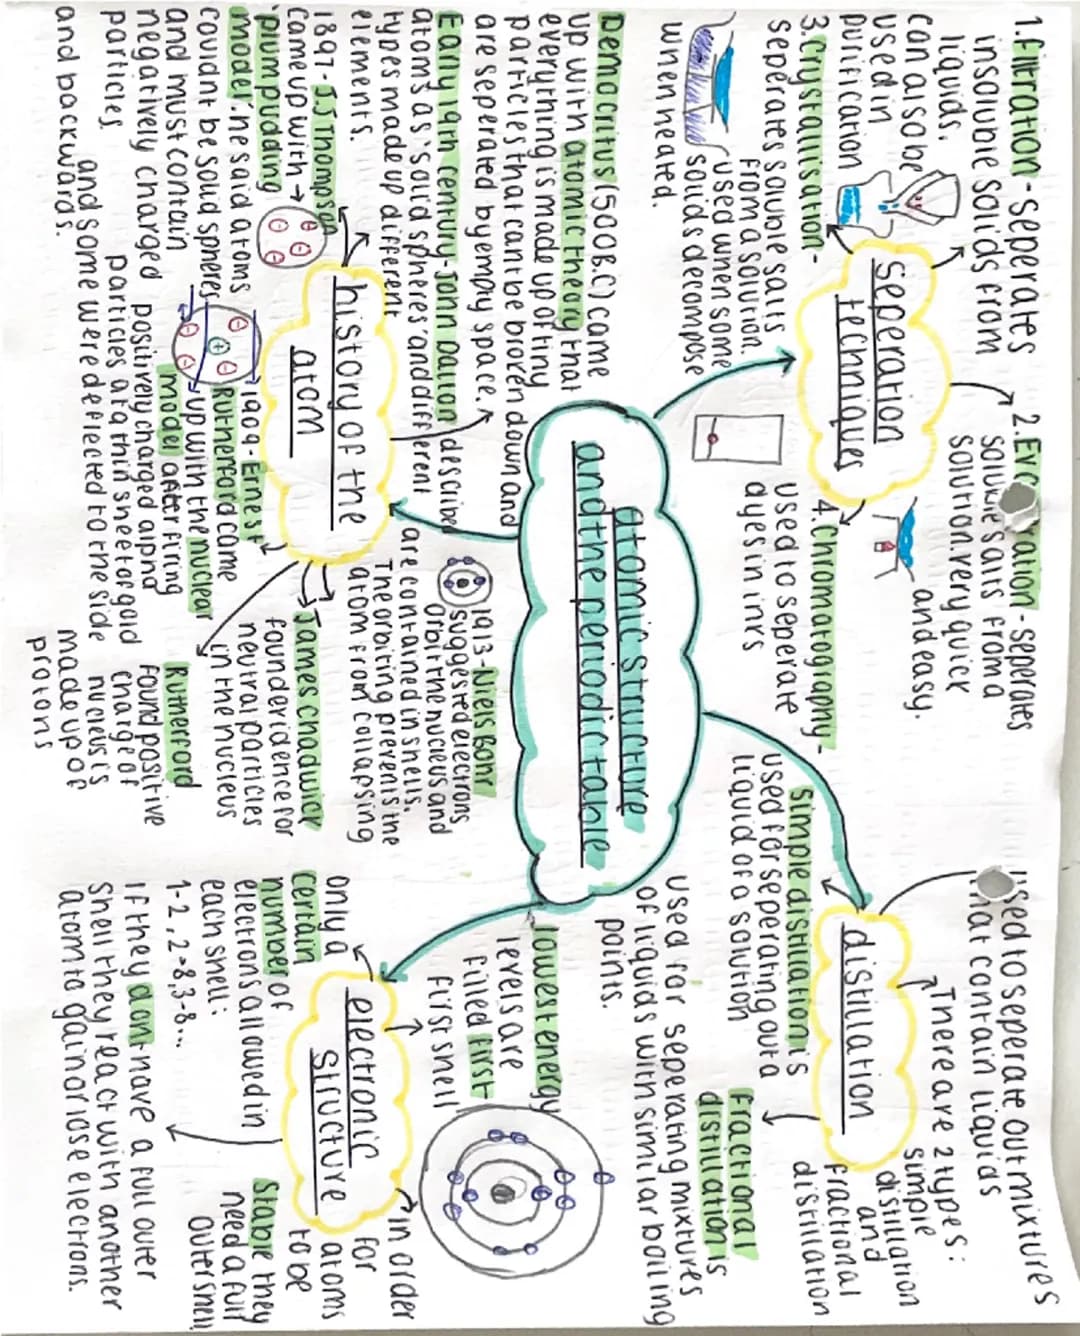 1. Filtration - seperates
insoluble solids from
liquids.
can also be
used in
purification
2. Eva ration - seperates
soluble salts from a
solution. very quick
and easy.
3. Crystallisation -
seperates soluble salts
from a solution.
used when some
solids decompose
when heated.
4. Chromatography -
used to seperate
dyes in inks
seperation
techniques
used to seperate out mixtures
that contain liquids
There are 2 types:
simple
distillation
and
fractional
distillation
distillation
simple distillation is
used for seperating out a
liquid of a solution
fractional
distillation is
used for seperating mixtures
of liquids with similar boiling
points.
atomic structure
and the periodic table
Democritus (500B.C) came
up with atomic theory that
everything is made up of tiny
particles that cant be broken down and
are seperated by empy space.
Early 19th century - John Dalton described
atoms as 'solid spheres' and different
types made up different
elements.
1897 - JJ Thompson
came up with →
'plum pudding
model' he said atoms
couldnt be solid spheres
and must contain
negatively charged
particles
history of the
atom
1909 - Ernest
Rutherford came
up with the nuclear
model after firing
positively charged alpha
particles at a thin sheet of gold
and some were deflected to the side
and backwards.
1913 - Niels Bohr
suggested electrons
orbit the nucleus and
are contained in shells.
The orbiting prevents the
atom from collapsing
James chadwick
found evidence for
neutral particles
in the nucleus
Rutherford
found positive
charge of
nucleus is
made up of
protons
lowest energy
levels are
filled first
first shell
electronic
structure
only a
certain
number of
electrons allowed in
each shell:
1-2, 2-8, 3-8...
in order
for
atoms
to be
stable they
need a full
outer shell
If they dont have a full outer
shell they react with another
atom to gain or lose electrons.